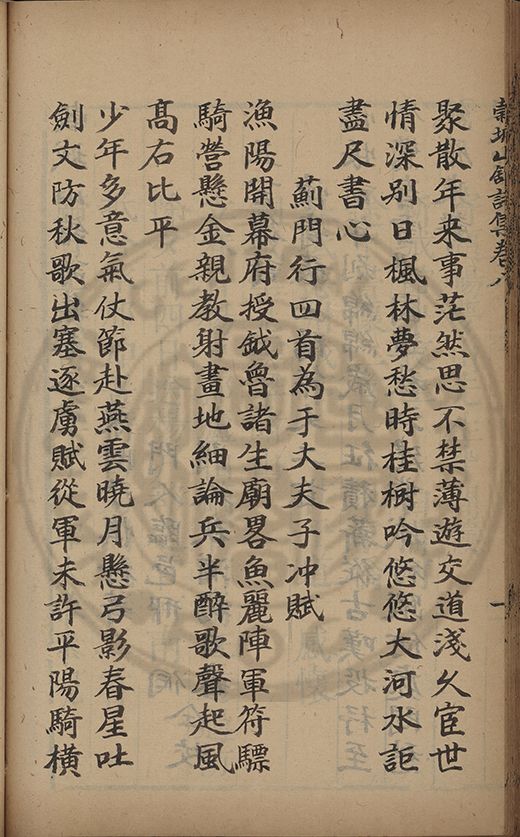 穀城山館詩集卷八
聚散年来事茫然思不禁薄遊交道淺久宦世
情深别日楓林夢愁時桂樹吟悠悠大河水詎
盡尺書心
薊門行四首為于大夫子冲賦
漁陽開幕府授鉞魯諸生廟畧魚麗陣軍符驃
騎營懸金親教射畫地細論兵半醉歌聲起風
高右北平
少年多意氣仗節赴燕雲曉月懸弓影春星吐
劍文防秋歌出塞逐虜賦從軍未許平陽騎橫